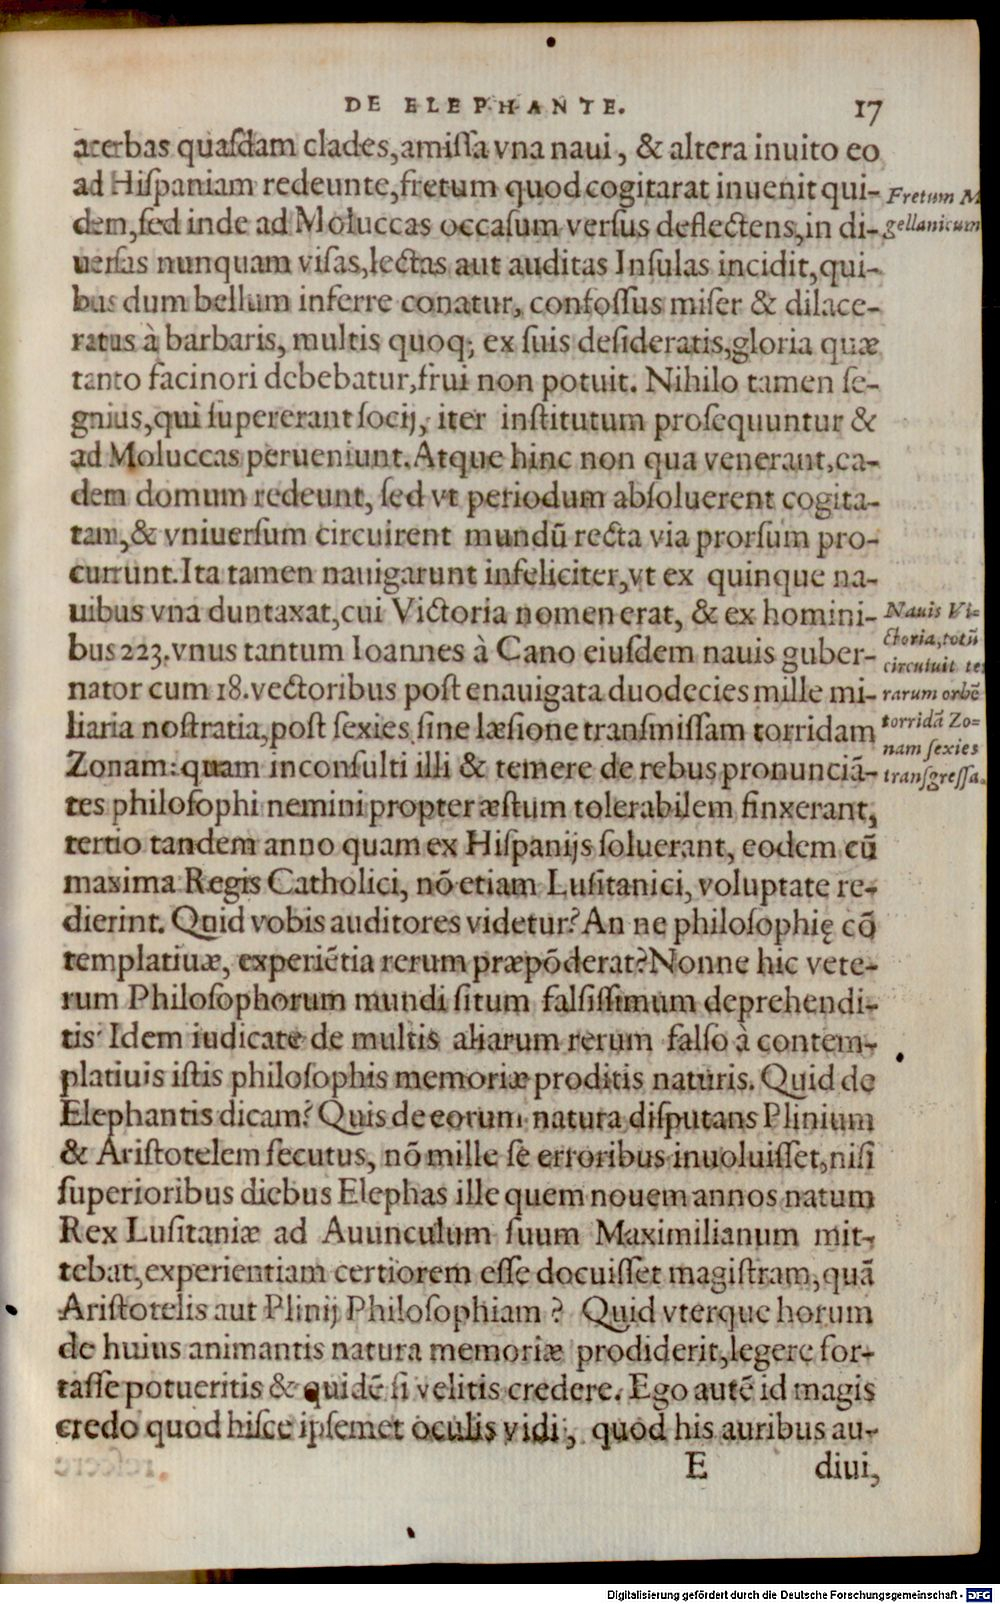 DE ELEPHANTE. 17
acerbas quaſdam clades,amiſſa vna naui, & altera inuito eo
ad Hiſpaniam redeunte,fretum quod cogitarat inuenit qui-
dem,ſed inde ad Moluccas occaſum verſus deflectens,in di-
uerſas nunquam viſas,lectas aut auditas Inſulas incidit,qui-
bus dum bellum inferre conatur, confoſſus miſer & dilace-
ratus à barbaris, multis quoq; ex ſuis deſideratis,gloria quæ
tanto facinori debebatur,frui non potuit. Nihilo tamen ſe-
gnius,qui ſupererant ſocij, iter inſtitutum proſequuntur &
ad Moluccas perueniunt.Atque hinc non qua venerant,ea-
dem domum redeunt, ſed vt periodum abſoluerent cogita-
tam,& vniuerſum circuirent mundū recta via prorſum pro-
currunt.Ita tamen nauigarunt infeliciter,vt ex quinque na-
uibus vna duntaxat,cui Victoria nomen erat, & ex homini-
bus 223.vnus tantum Ioannes à Cano eiuſdem nauis guber-
nator cum 18.vectoribus poſt enauigata duodecies mille mi-
liaria noſtratia,poſt ſexies ſine læſione tranſmiſſam torridam
Zonam:quam inconſulti illi & temere de rebus pronunciā-
tes philoſophi nemini propter æſtum tolerabilem finxerant,
tertio tandem anno quam ex Hiſpanijs ſoluerant, eodem cū
maxima Regis Catholici, nō etiam Luſitanici, voluptate re-
dierint. Quid vobis auditores videtur? An ne philoſophię cō
templatiuæ, experiētia rerum præpōderat?Nonne hic vete-
rum Philoſophorum mundi ſitum falſiſſimum deprehendi-
tis? Idem iudicate de multis aliarum rerum falſo à contem-
platiuis iſtis philoſophis memoriæ proditis naturis. Quid de
Elephantis dicam? Quis de eorum natura diſputans Plinium
& Ariſtotelem ſecutus, nō mille ſe erroribus inuoluiſſet,niſi
ſuperioribus diebus Elephas ille quem nouem annos natum
Rex Luſitaniæ ad Auunculum ſuum Maximilianum mit-
tebat,experientiam certiorem eſſe docuiſſet magiſtram,quā
Ariſtotelis aut Plinij Philoſophiam? Quid vterque horum
de huius animantis natura memoriæ prodiderit,legere for-
taſſe potueritis & quidē ſi velitis credere. Ego autē id magis
credo quod hiſce ipſemet oculis vidi, quod his auribus au-
E diui,
Fretum M
gellanicum
Nauis Vi-
ctoria,totū
circuiuit te
rarum orbē
torridā Zo-
nam ſexies
tranſgreſſa.
Digitalisierung gefördert durch die Deutsche Forschungsgemeinschaft - DFG